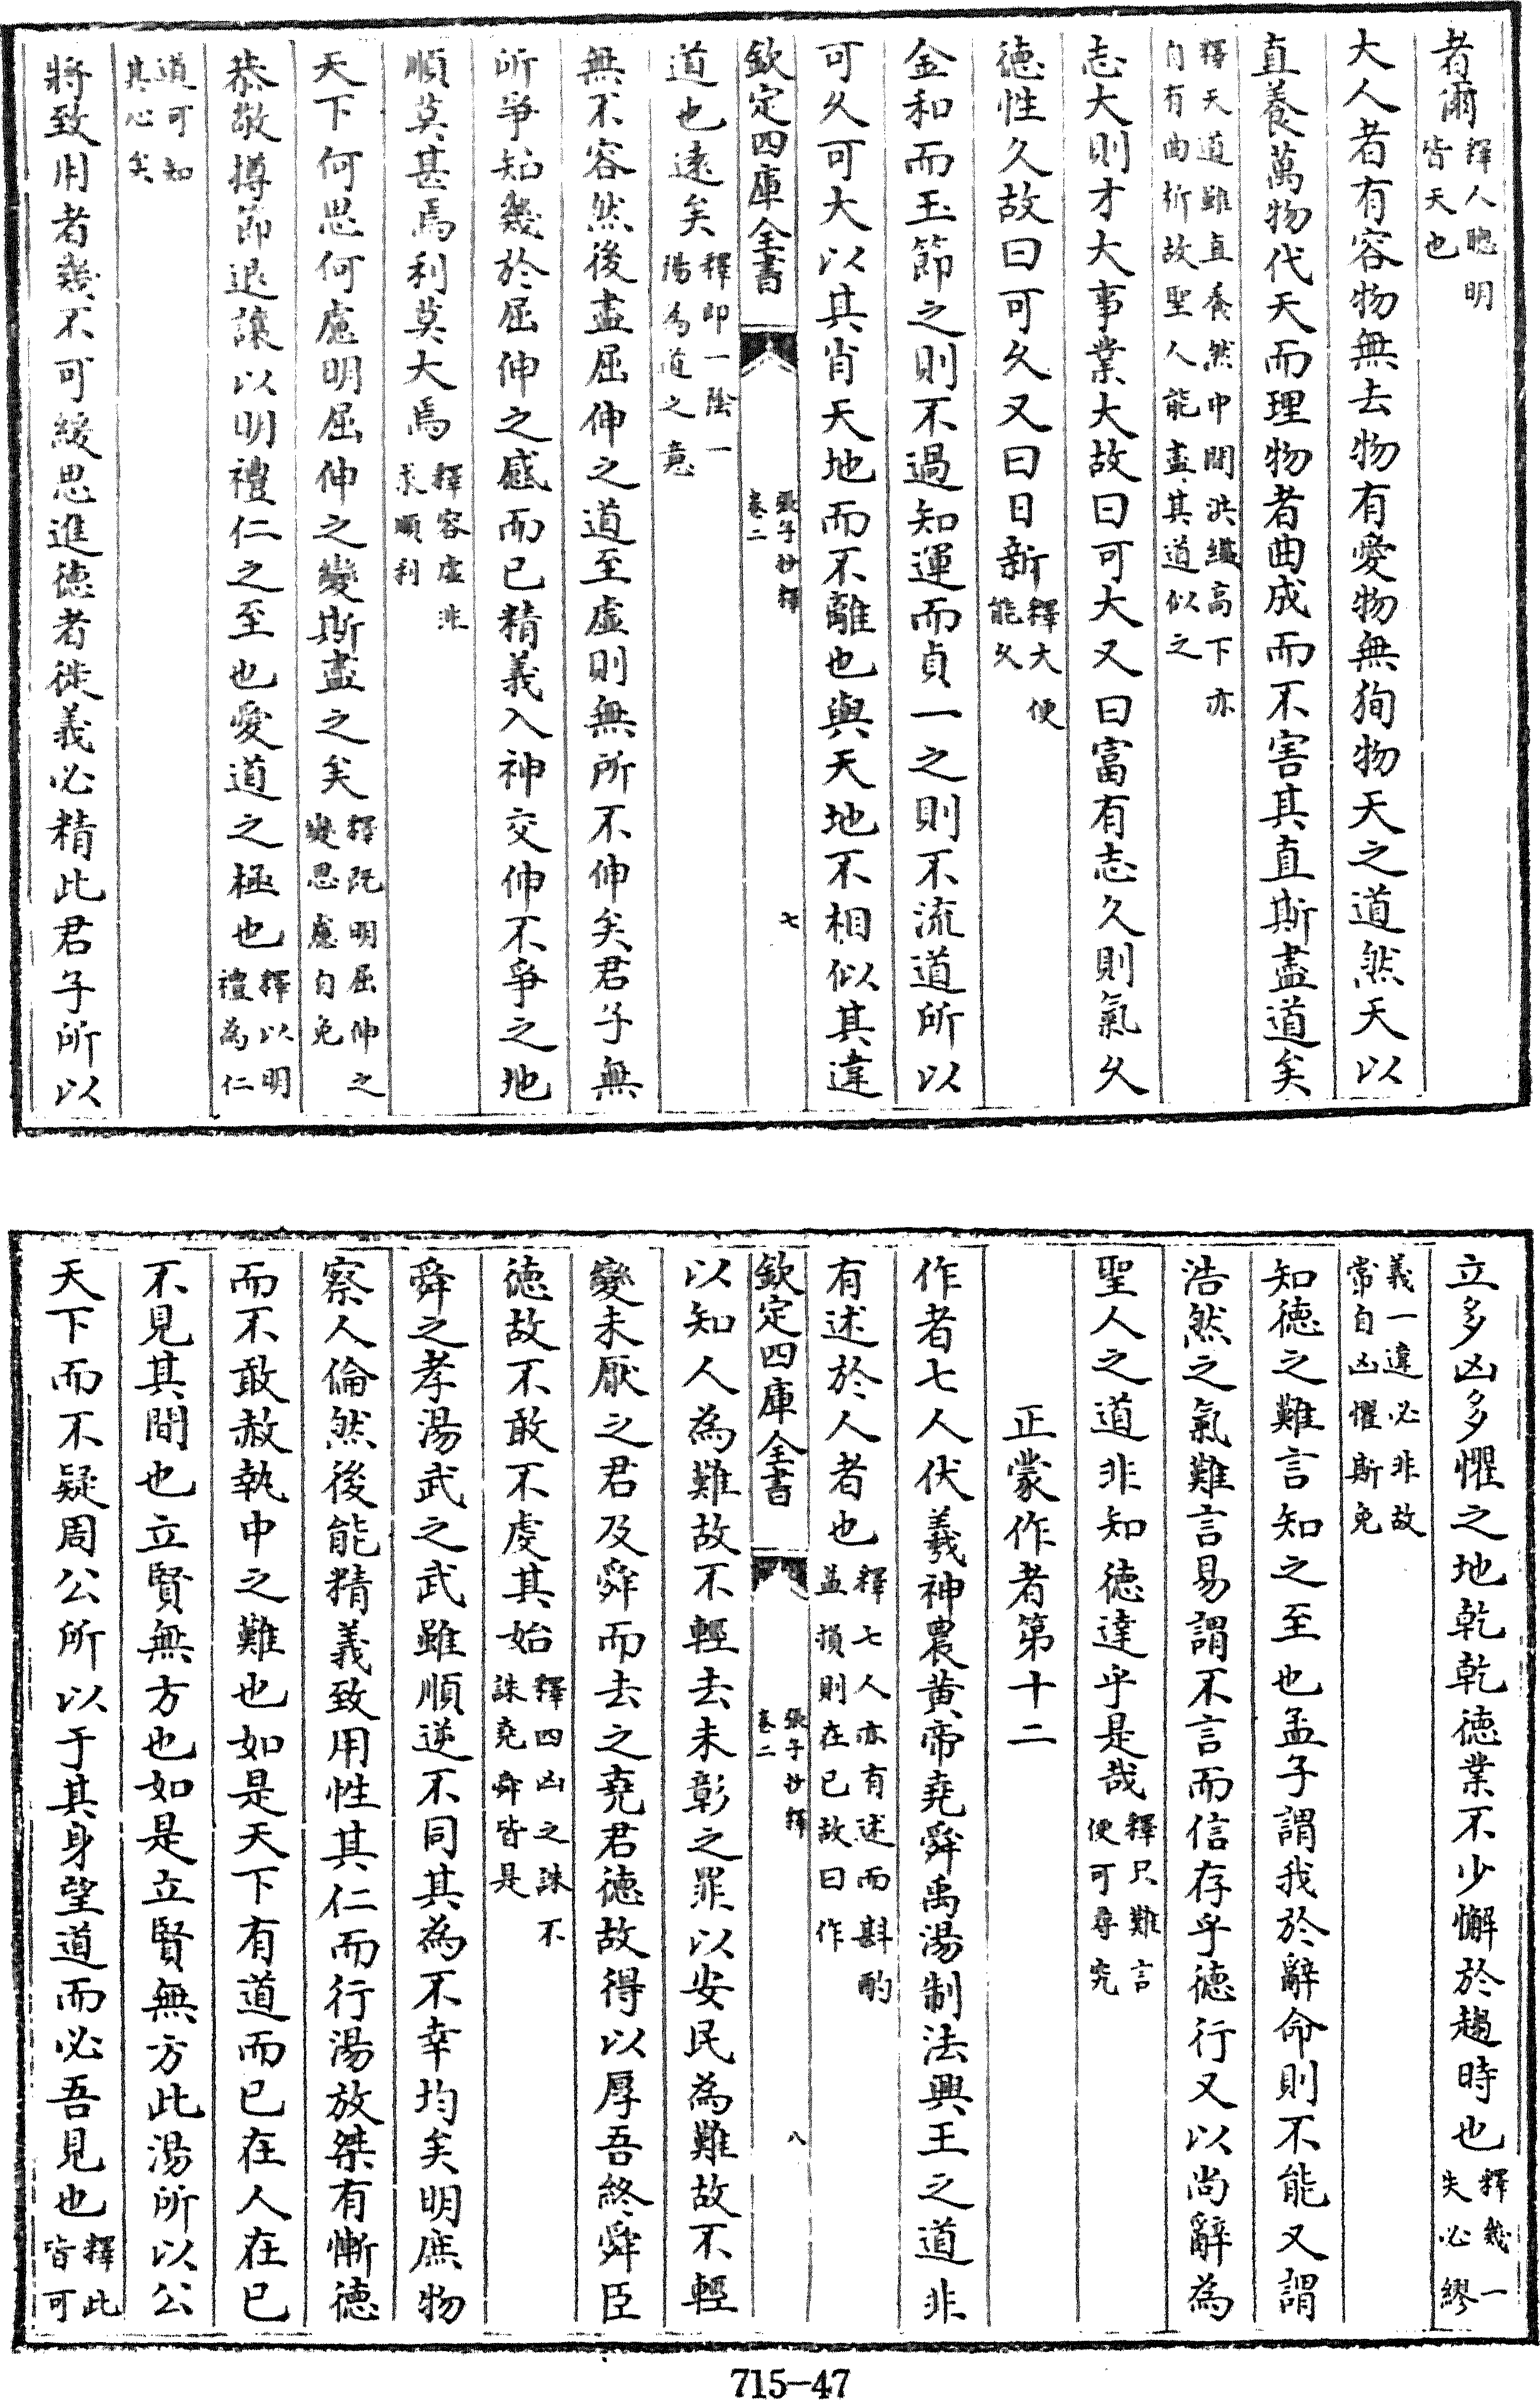 者爾釋人聰明皆天也
大人者有容物無去物有愛物無狥物天之道然天以
直養萬物代天而理物者曲成而不害其直斯盡道矣
釋天道雖直養然中間洪纎高下亦自有曲折故聖人能盡其道似之
志大則才大事業大故曰可大又曰富有志久則氣久
德性久故曰可久又曰日新釋大便能久
金和而玉節之則不過知運而貞一之則不流道所以
可久可大以其肖天地而不離也與天地不相似其違
欽定四庫全書 張子抄釋卷二 七
道也遠矣釋即一陰一陽為道之意
無不容然後盡屈伸之道至虛則無所不伸矣君子無
所爭知幾於屈伸之感而已精義入神交伸不爭之地
順莫甚焉利莫大焉釋容虛非求順利
天下何思何慮明屈伸之變斯盡之矣釋既明屈伸之變思慮自免
恭敬撙節退讓以明禮仁之至也愛道之極也釋以明禮為仁
道可知其心矣
將致用者幾不可緩思進德者徙義必精此君子所以
立多凶多懼之地乾乾德業不少懈於趨時也釋幾一失必繆
義一違必非故常自凶懼斯免
知德之難言知之至也孟子謂我於辭命則不能又謂
浩然之氣難言易謂不言而信存乎德行又以尚辭為
聖人之道非知德達乎是哉釋只難言便可尋究
正蒙作者第十二
作者七人伏羲神農黃帝堯舜禹湯制法興王之道非
有述於人者也釋七人亦有述而斟酌益損則在已故曰作
欽定四庫全書 張子抄釋卷二 八
以知人為難故不輕去未彰之罪以安民為難故不輕
變未厭之君及舜而去之堯君德故得以厚吾終舜臣
德故不敢不虔其始釋四凶之誅不誅堯舜皆是
舜之孝湯武之武雖順逆不同其為不幸均矣明庶物
察人倫然後能精義致用性其仁而行湯放桀有慚德
而不敢赦執中之難也如是天下有道而已在人在已
不見其間也立賢無方也如是立賢無方此湯所以公
天下而不疑周公所以于其身望道而必吾見也釋此皆可
715-47